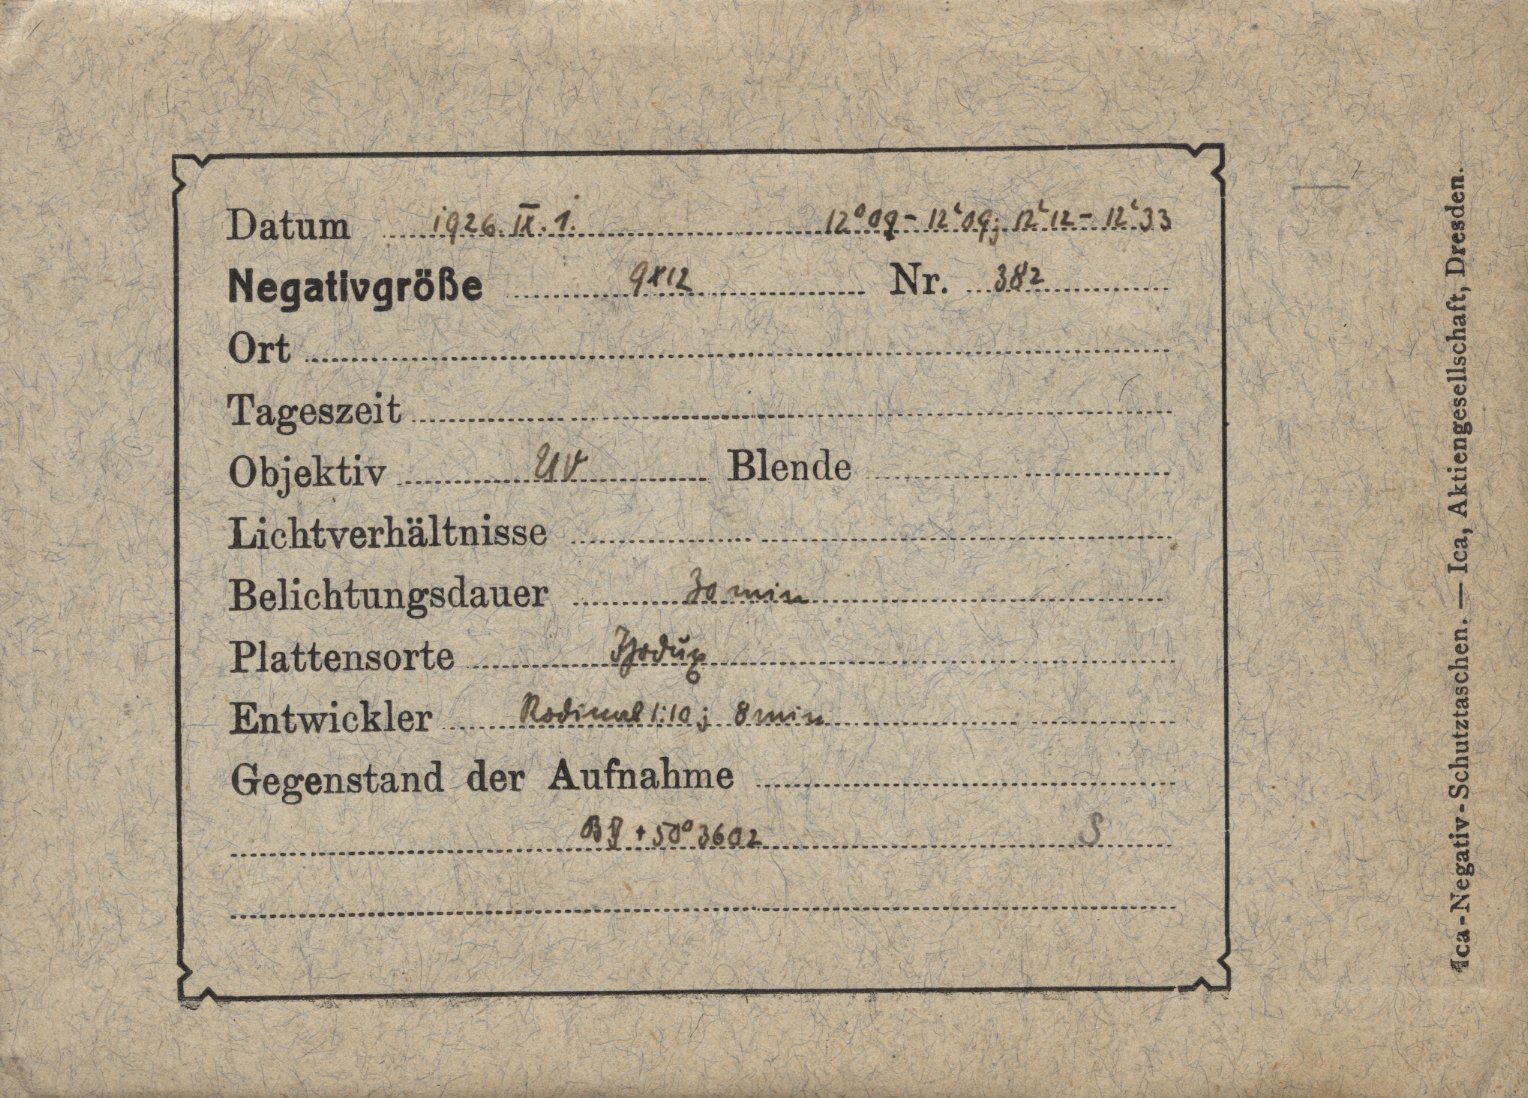 Datum 1926. IX. 1. 12ʰ09 - 12ʰ09; 12ʰ12 - 12ʰ33
Negativgröße 9x12 Nr. 382
Ort
Tageszeit
Objektiv UV Blende
Lichtverhältnisse
Belichtungsdauer 30 min
Plattensorte
Entwickler Rodinal 1:10; 8 min
Gegenstand der Aufnahme
BD +50°3602 S
Ica-Negativ-Schutztaschen. — Ica, Aktiengesellschaft, Dresden.